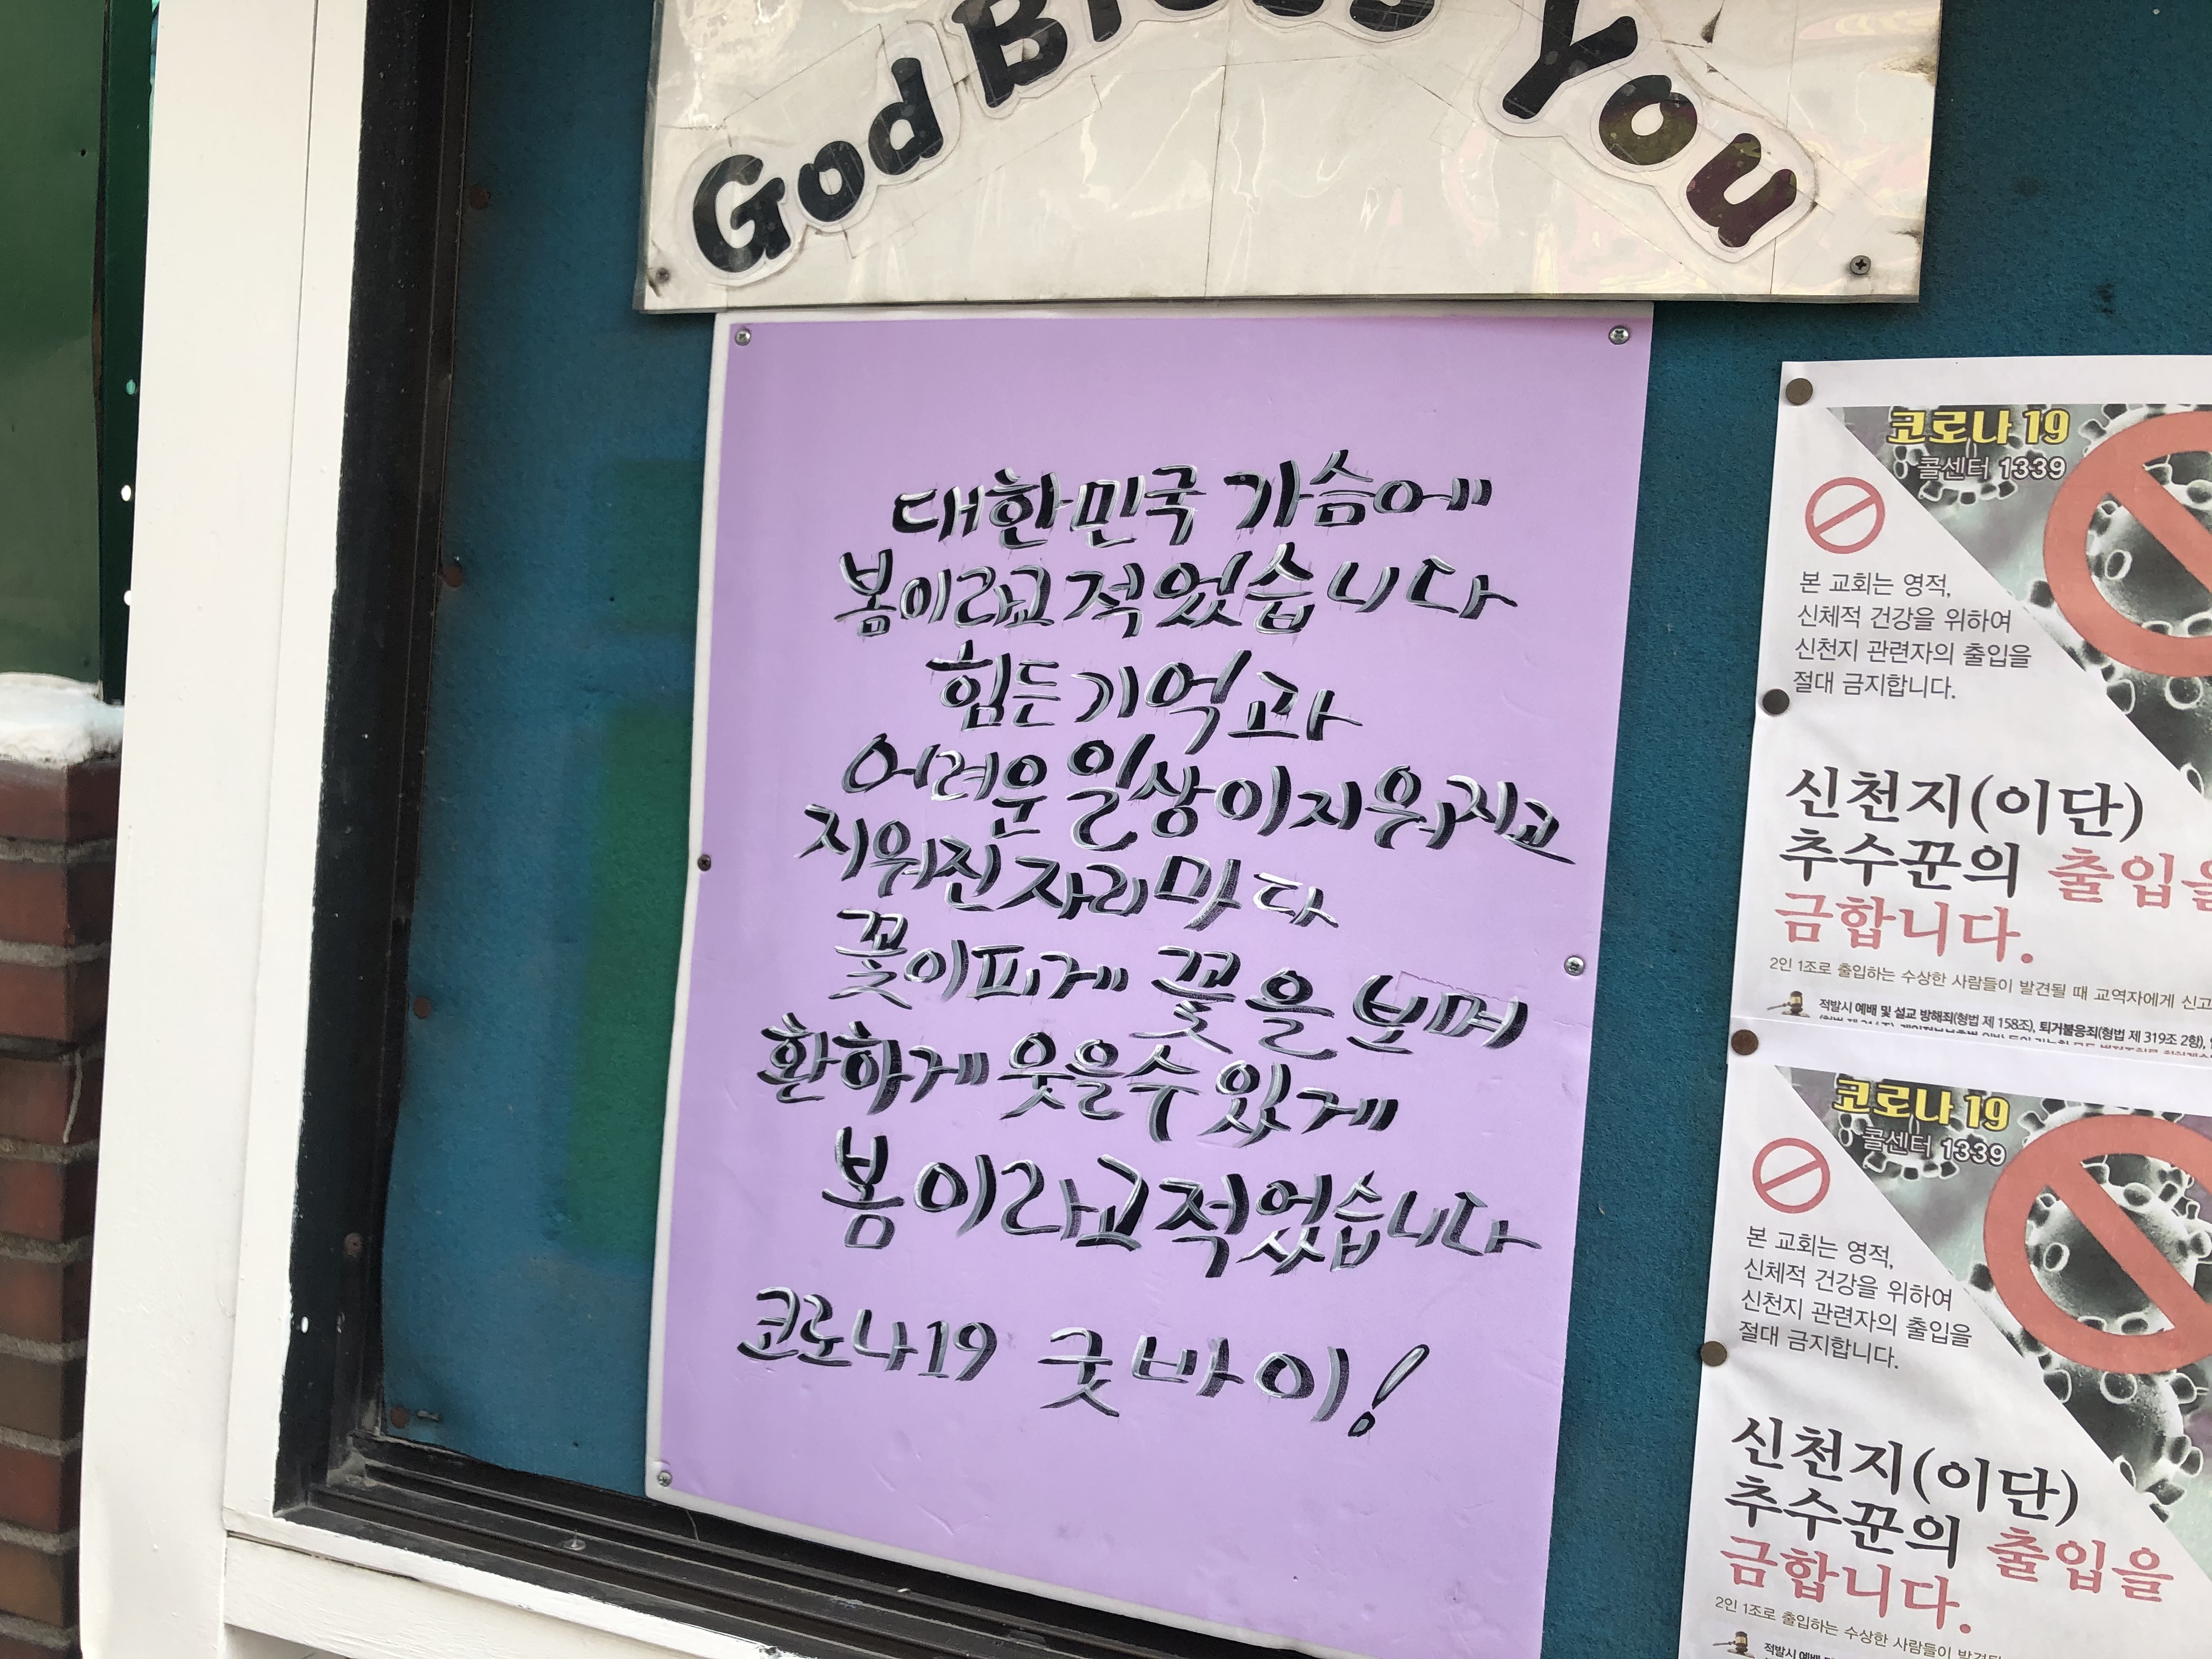 God Bless You
대한민국 가슴에
봄이라고 적었습니다
힘든 기억과
어려운 일상이 지워지고
지워진 자리마다
꽃이 피게 꽃을 보며
환하게 웃을 수 있게
봄이라고 적었습니다
코로나19 굿바이!
코로나 19
콜센터 1339
본 교회는 영적,
신체적 건강을 위하여
신천지 관련자의 출입을
절대 금지합니다.
신천지(이단)
추수꾼의 출입을
금합니다.
2인 1조로 출입하는 수상한 사람들이 발견될 때 교역자에게 신고
적발시 예배 및 설교 방해죄(형법 제 158조), 퇴거불응죄(형법 제 319조 2항),
코로나 19
콜센터 1339
본 교회는 영적,
신체적 건강을 위하여
신천지 관련자의 출입을
절대 금지합니다.
신천지(이단)
추수꾼의 출입을
금합니다.
2인 1조로 출입하는 수상한 사람들이 발견될
적발시 예배